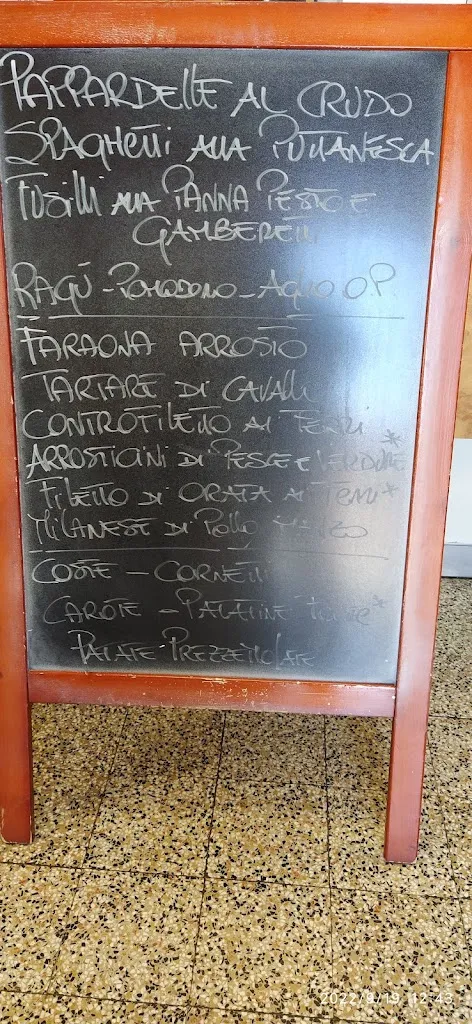 PAPPARDELLE AL CRUDO
SPAGHETTI ALLA PUTTANESCA
FUSILLI ALLA PANNA PESTO E
GAMBERETTI
RAGÙ - POMODORO - AGLIO O.P.
FARAONA ARROSTO
TARTARE DI CAVALLO
CONTROFILETTO AI FERRI
ARROSTICINI DI PESCE E VERDURE*
FILETTO DI ORATA AI FERRI*
MILANESE DI POLLO MANZO
COSTE - CORNETTI
CAROTE - PATATINE FRITTE*
PATATE PREZZEMOLATE
2022/9/19 12:43